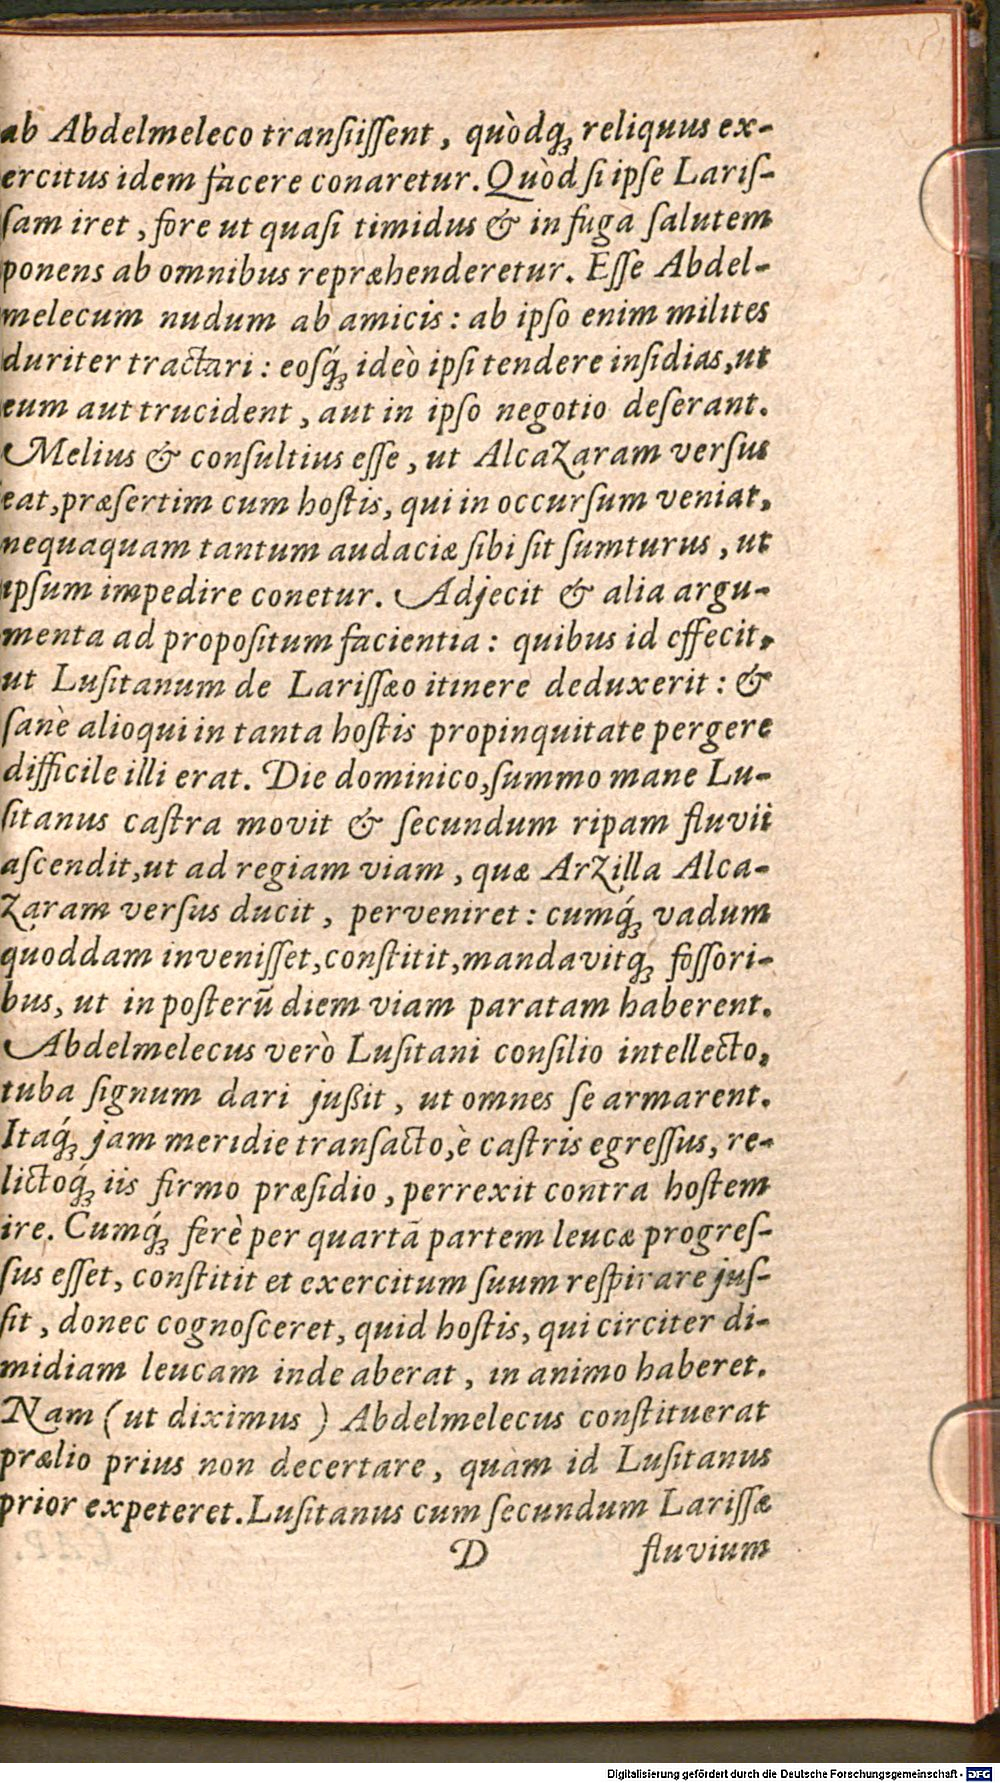 ab Abdelmeleco tranſiiſſent, quòdq́ꝫ reliquus ex-
ercitus idem facere conaretur. Quòd ſi ipſe Lariſ-
ſam iret, fore ut quaſi timidus & in fuga ſalutem
ponens ab omnibus repræhenderetur. Eſſe Abdel-
melecum nudum ab amicis: ab ipſo enim milites
duriter tractari: eoſq́ꝫ ideò ipſi tendere inſidias, ut
eum aut trucident, aut in ipſo negotio deſerant.
Melius & conſultius eſſe, ut Alcazaram verſus
eat, præſertim cum hoſtis, qui in occurſum veniat,
nequaquam tantum audaciæ ſibi ſit ſumturus, ut
ipſum impedire conetur. Adjecit & alia argu-
menta ad propoſitum facientia: quibus id effecit,
ut Luſitanum de Lariſſæo itinere deduxerit: &
ſanè alioqui in tanta hoſtis propinquitate pergere
difficile illi erat. Die dominico, ſummo mane Lu-
ſitanus caſtra movit & ſecundum ripam fluvii
aſcendit, ut ad regiam viam, quæ Arzilla Alca-
zaram verſus ducit, perveniret: cumq́ꝫ vadum
quoddam inveniſſet, conſtitit, mandavitqꝫ foſſori-
bus, ut in poſterū diem viam paratam haberent.
Abdelmelecus verò Luſitani conſilio intellecto,
tuba ſignum dari jußit, ut omnes ſe armarent.
Itaq́ꝫ jam meridie tranſacto, è caſtris egreſſus, re-
lictoq́ꝫ iis firmo præſidio, perrexit contra hoſtem
ire. Cumq́ꝫ ferè per quartā partem leucæ progreſ-
ſus eſſet, conſtitit et exercitum ſuum reſpirare juſ-
ſit, donec cognoſceret, quid hoſtis, qui circiter di-
midiam leucam inde aberat, in animo haberet.
Nam (ut diximus) Abdelmelecus conſtituerat
prælio prius non decertare, quàm id Luſitanus
prior expeteret. Luſitanus cum ſecundum Lariſſæ
D fluvium
Digitalisierung gefördert durch die Deutsche Forschungsgemeinschaft - DFG